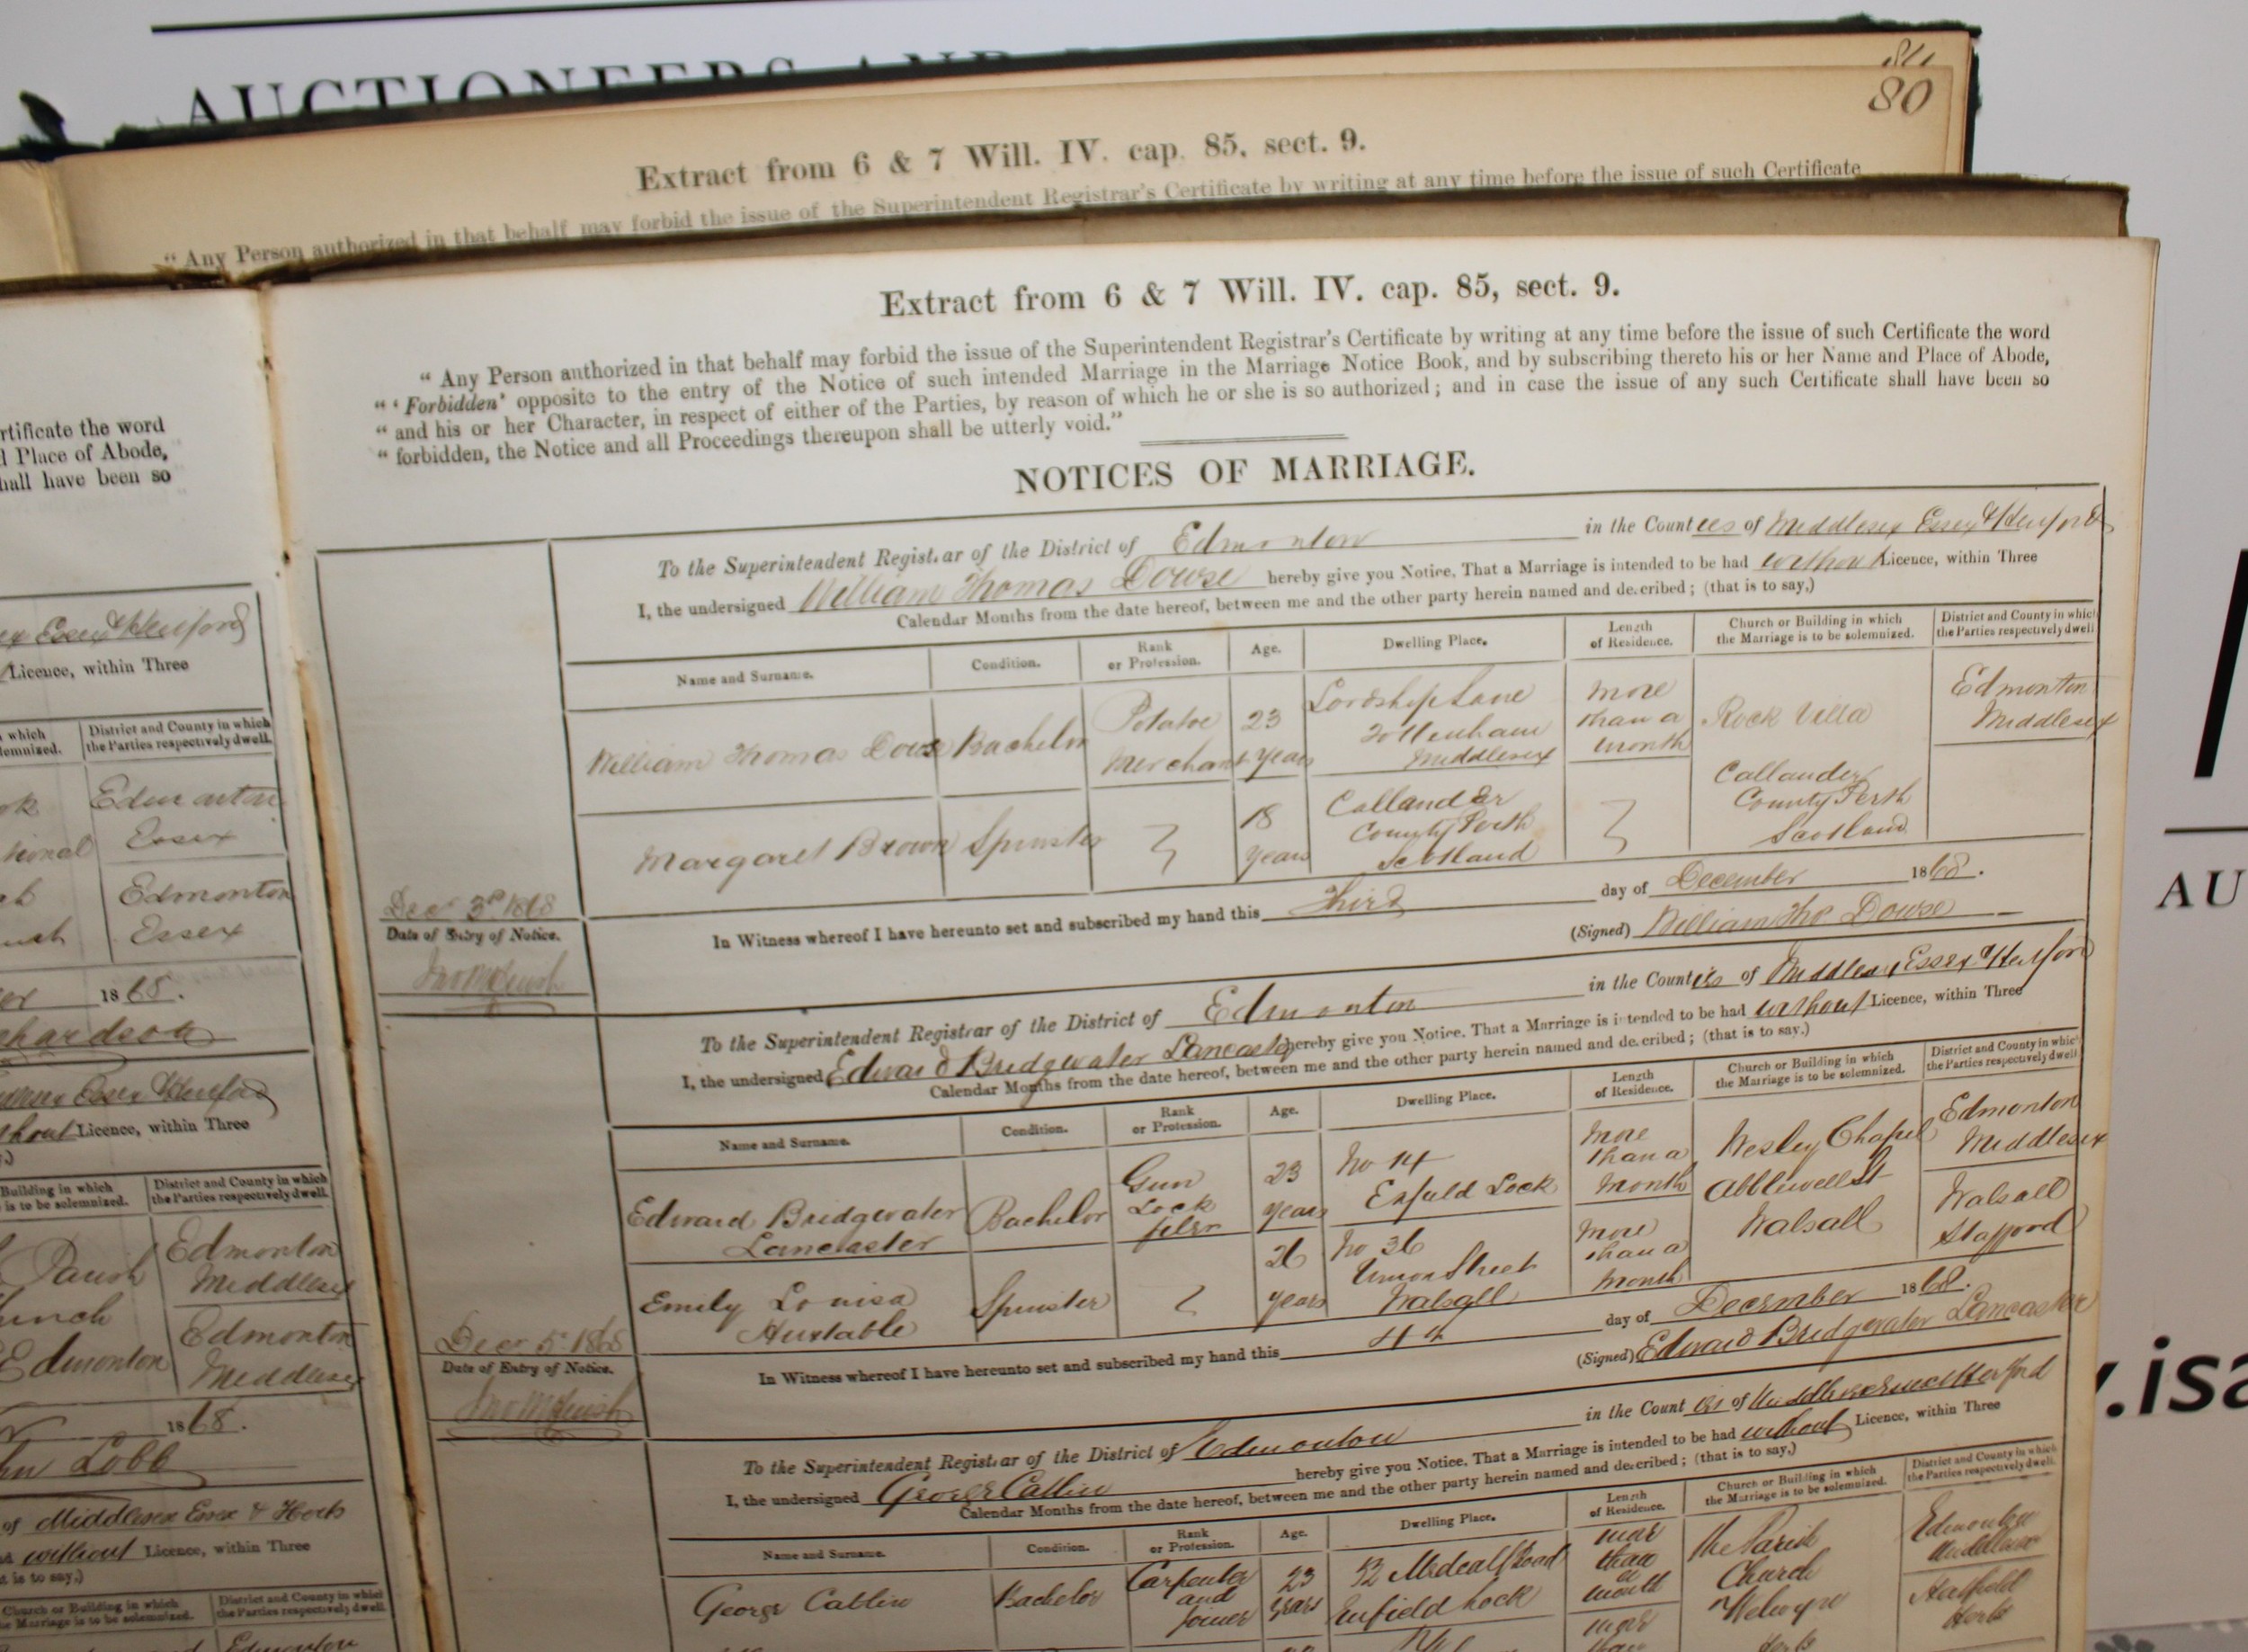 AUCTIONEERS AND
80
Extract from 6 & 7 Will. IV. cap. 85, sect. 9.
“ Any Person authorized in that behalf may forbid the issue of the Superintendent Registrar's Certificate by writing at any time before the issue of such Certificate
Extract from 6 & 7 Will. IV. cap. 85, sect. 9.
“ Any Person authorized in that behalf may forbid the issue of the Superintendent Registrar's Certificate by writing at any time before the issue of such Certificate the word
“ ‘ Forbidden’ opposite to the entry of the Notice of such intended Marriage in the Marriage Notice Book, and by subscribing thereto his or her Name and Place of Abode,
“ and his or her Character, in respect of either of the Parties, by reason of which he or she is so authorized; and in case the issue of any such Certificate shall have been so
“ forbidden, the Notice and all Proceedings thereupon shall be utterly void.”
NOTICES OF MARRIAGE.
To the Superintendent Registrar of the District of Edmonton in the Counties of Middlesex Essex & Herford
I, the undersigned William Thomas Dowse hereby give you Notice, That a Marriage is intended to be had without Licence, within Three
Calendar Months from the date hereof, between me and the other party herein named and described; (that is to say,)
Name and Surname. Condition. Rank or Profession. Age. Dwelling Place. Length of Residence. Church or Building in which the Marriage is to be solemnized. District and County in which the Parties respectively dwell.
William Thomas Dowse Bachelor Potatoe Merchant 23 years Lordship Lane Tottenham Middlesex more than a month Rock Villa Edmonton Middlesex
Margaret Brown Spinster 18 years Callander County Perth Scotland Callander County Perth Scotland
In Witness whereof I have hereunto set and subscribed my hand this Third day of December 1868.
(Signed) William Tho Dowse
Dec 3rd 1868
Date of Entry of Notice.
To the Superintendent Registrar of the District of Edmonton in the Counties of Middlesex Essex & Herford
I, the undersigned Edward Bridgwater Lancaster hereby give you Notice, That a Marriage is intended to be had without Licence, within Three
Calendar Months from the date hereof, between me and the other party herein named and described; (that is to say,)
Name and Surname. Condition. Rank or Profession. Age. Dwelling Place. Length of Residence. Church or Building in which the Marriage is to be solemnized. District and County in which the Parties respectively dwell.
Edward Bridgwater Lancaster Bachelor Gun Lock filer 23 years No 14 Enfield Lock more than a month Wesley Chapel Ablewell St Walsall Edmonton Middlesex
Emily Louisa Huxtable Spinster 26 years No 36 Union Street Walsall more than a month Walsall Stafford
In Witness whereof I have hereunto set and subscribed my hand this 4th day of December 1868.
(Signed) Edward Bridgwater Lancaster
Dec 5 1868
Date of Entry of Notice.
To the Superintendent Registrar of the District of Edmonton in the Counties of Middlesex Essex & Herford
I, the undersigned George Catlin hereby give you Notice, That a Marriage is intended to be had without Licence, within Three
Calendar Months from the date hereof, between me and the other party herein named and described; (that is to say,)
Name and Surname. Condition. Rank or Profession. Age. Dwelling Place. Length of Residence. Church or Building in which the Marriage is to be solemnized. District and County in which the Parties respectively dwell.
George Catlin Bachelor Carpenter and Joiner 23 years 52 Medcalf Road Enfield Lock more than a month The Parish Church Welwyn Herts Edmonton Middlesex
Hatfield Herts
rtificate the word
Place of Abode,
hall have been so
Essex & Herford
Licence, within Three
District and County in which the Parties respectively dwell.
Edmonton Essex
Edmonton Essex
1868.
chardson
Essex & Herford
thout Licence, within Three
Building in which is to be solemnized. District and County in which the Parties respectively dwell.
Parish Edmonton Middlesex
Edmonton Edmonton Middlesex
1868.
Lobb
of Middlesex Essex & Herts
without Licence, within Three
t is to say,)
Church or Building in which the Marriage is to be solemnized. District and County in which the Parties respectively dwell.
Edmonton
AU
y.isa